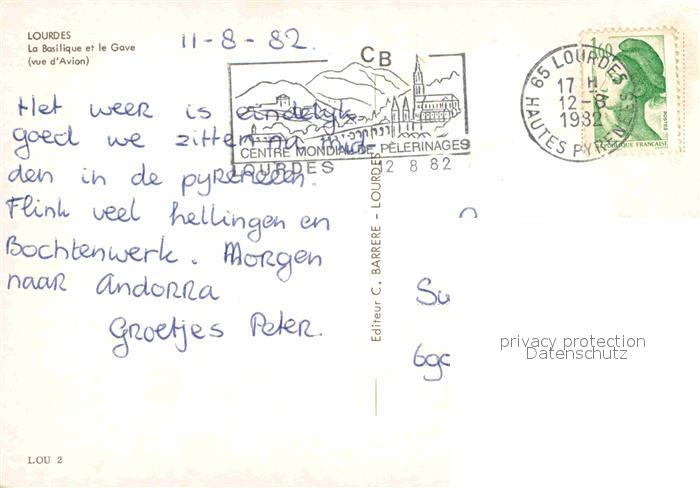 LOURDES
La Basilique et le Gave
(vue d'Avion)
11-8-82.
CB
CENTRE MONDIAL DE PÈLERINAGES
LOURDES 12 8 82
1,60
POSTES
RÉPUBLIQUE FRANÇAISE
65 LOURDES
17 H
12-8
1982
HAUTES PYRENEES
Het weer is eindelijk
goed we zitten nu mid-
den in de pyreneeën.
Flink veel hellingen en
Bochtenwerk. Morgen
naar Andorra
Groetjes Peter.
Editeur C. BARRERE - LOURDES
Su
privacy protection
Datenschutz
LOU 2